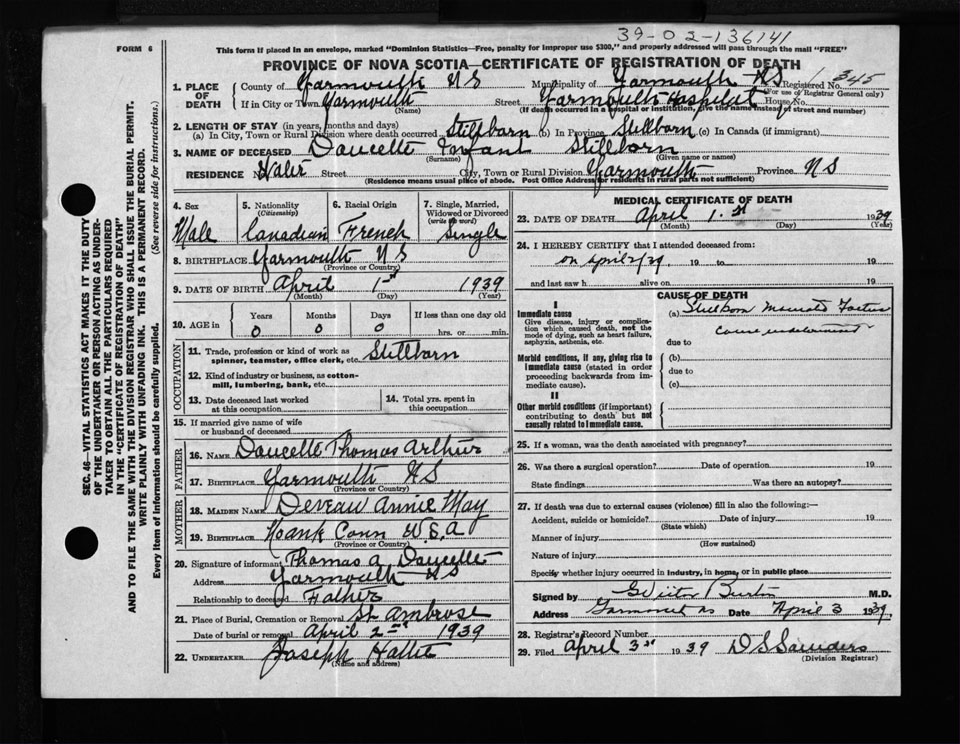 39-02-136141
FORM 6
This form if placed in an envelope, marked "Dominion Statistics—Free, penalty for improper use $300," and properly addressed will pass through the mail "FREE"
PROVINCE OF NOVA SCOTIA—CERTIFICATE OF REGISTRATION OF DEATH
1. PLACE OF DEATH
County of Yarmouth NS Municipality of Yarmouth NS Registered No. 345
(For use of Registrar General only)
If in City or Town Yarmouth Street Yarmouth Hospital House No.
(Name) (If death occurred in a hospital or institution, give the name instead of street and number)
2. LENGTH OF STAY (in years, months and days)
(a) In City, Town or Rural Division where death occurred Stillborn (b) In Province Stillborn (c) In Canada (if immigrant)
3. NAME OF DECEASED Doucette Infant Stillborn
(Surname) (Given name or names)
RESIDENCE No. Water Street City, Town or Rural Division Yarmouth Province NS
(Residence means usual place of abode. Post Office Address for residents in rural parts not sufficient)
4. Sex
Male
5. Nationality
(Citizenship)
Canadian
6. Racial Origin
French
7. Single, Married,
Widowed or Divorced
(write the word)
Single
8. BIRTHPLACE Yarmouth NS
(Province or Country)
9. DATE OF BIRTH April 1st 1939
(Month) (Day) (Year)
10. AGE in
Years Months Days If less than one day old
0 0 0 hrs. or min.
OCCUPATION
11. Trade, profession or kind of work as
spinner, teamster, office clerk, etc. Stillborn
12. Kind of industry or business, as cotton-
mill, lumbering, bank, etc.
13. Date deceased last worked
at this occupation
14. Total yrs. spent in
this occupation
15. If married give name of wife
or husband of deceased
FATHER
16. NAME Doucette Thomas Arthur
17. BIRTHPLACE Yarmouth NS
(Province or Country)
MOTHER
18. MAIDEN NAME Deveau Annie May
19. BIRTHPLACE Conn U.S.A
(Province or Country)
20. Signature of informant Thomas A Doucette
Address Yarmouth NS
Relationship to deceased Father
21. Place of Burial, Cremation or Removal St. Ambrose
Date of burial or removal April 2nd 1939
22. UNDERTAKER Joseph
(Name and address)
MEDICAL CERTIFICATE OF DEATH
23. DATE OF DEATH April 1st 1939
(Month) (Day) (Year)
24. I HEREBY CERTIFY that I attended deceased from:
on April 19 to 19
and last saw h alive on 19
CAUSE OF DEATH
I
Immediate cause
Give disease, injury or complica-
tion which caused death, not the
mode of dying, such as heart failure,
asphyxia, asthenia, etc.
(a) Stillborn Foetus
cause undetermined
due to
Morbid conditions, if any, giving rise to
immediate cause (stated in order
proceeding backwards from im-
mediate cause).
(b)
due to
(c)
II
Other morbid conditions (if important)
contributing to death but not
causally related to immediate cause.
25. If a woman, was the death associated with pregnancy?
26. Was there a surgical operation? Date of operation 19
State findings Was there an autopsy?
27. If death was due to external causes (violence) fill in also the following:—
Accident, suicide or homicide? Date of injury 19
(State which)
Manner of injury
(How sustained)
Nature of injury
Specify whether injury occurred in industry, in home, or in public place
Signed by G Victor Burton M.D.
Address Yarmouth NS Date April 3 1939
28. Registrar's Record Number
29. Filed April 3rd 1939 D S Saunders
(Division Registrar)
SEC. 46—VITAL STATISTICS ACT MAKES IT THE DUTY
OF THE UNDERTAKER OR PERSON ACTING AS UNDER-
TAKER TO OBTAIN ALL THE PARTICULARS REQUIRED
IN THE "CERTIFICATE OF REGISTRATION OF DEATH"
AND TO FILE THE SAME WITH THE DIVISION REGISTRAR WHO SHALL ISSUE THE BURIAL PERMIT.
WRITE PLAINLY WITH UNFADING INK. THIS IS A PERMANENT RECORD.
(See reverse side for instructions.)
Every item of information should be carefully supplied.